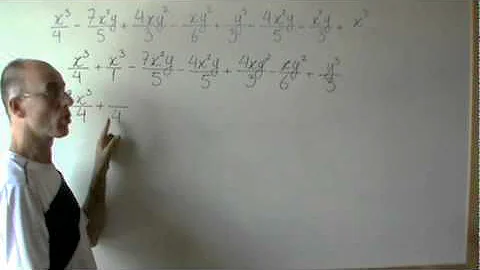 x³/4 - 7x²y/5 + 4xy²/3 - xy²/6 + y³/3 - 4x²y/5 - x²y/3 + x³
x³/4 + x³/1 - 7x²y/5 - 4x²y/5 + 4xy²/3 - xy²/6 + y³/3
x³/4 + /4